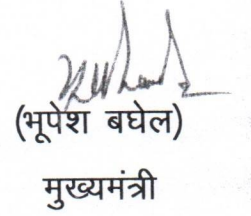 (भूपेश बघेल)
मुख्यमंत्री